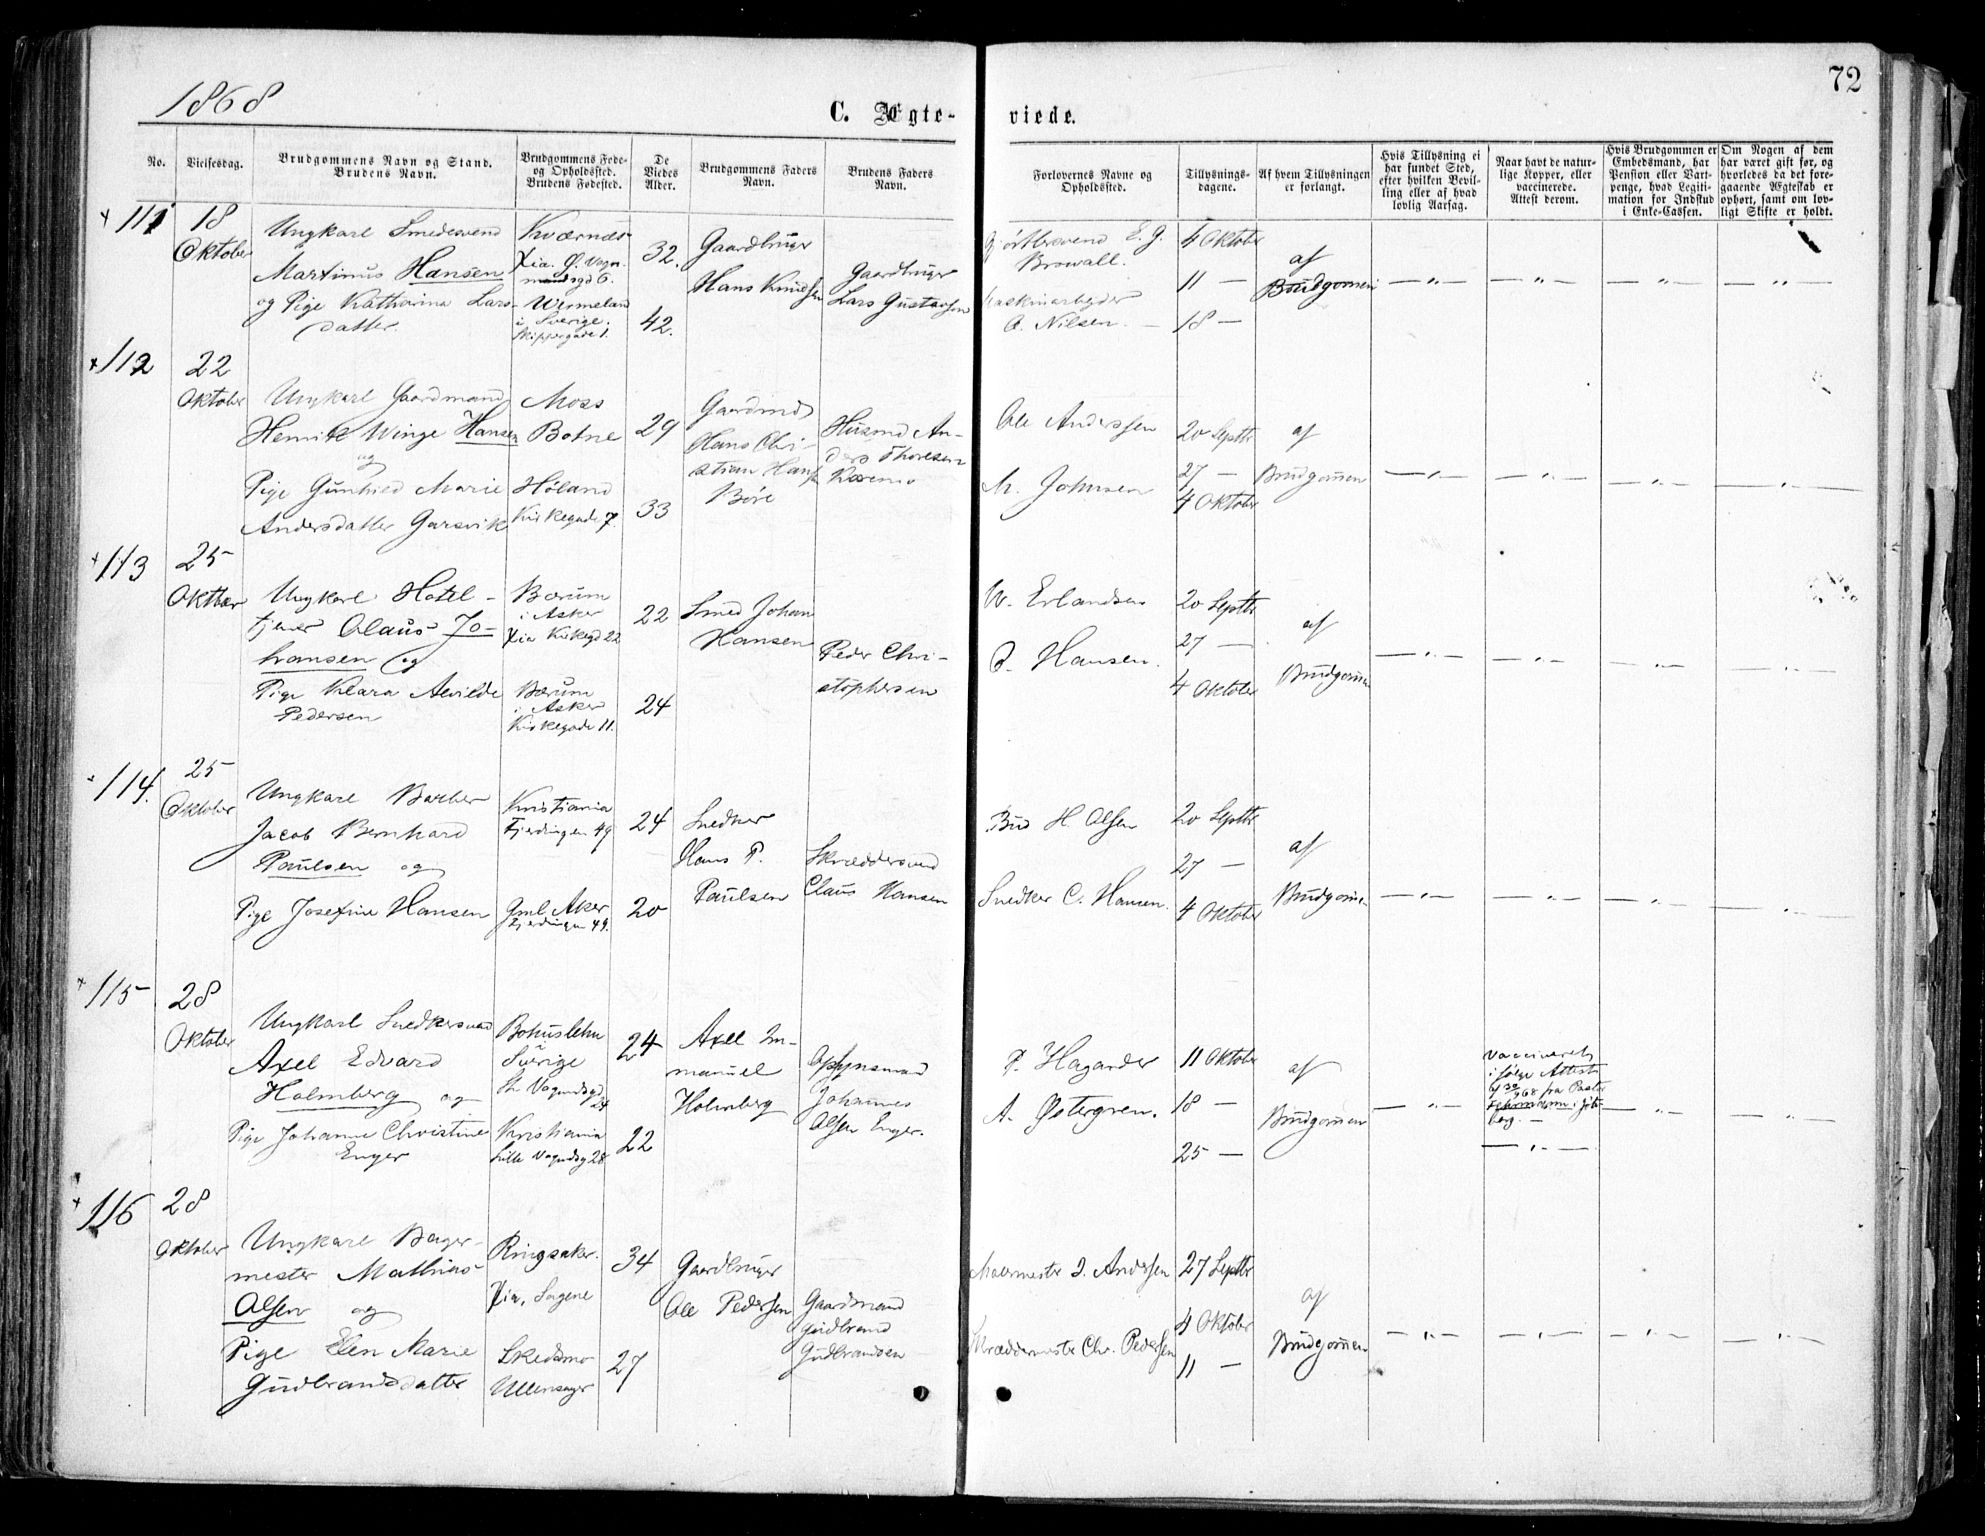 1868
C. Ægte-
viede.
72
No.
Vielsesdag.
Brudgommens Navn og Stand.
Brudens Navn.
Brudgommens Føde-
og Opholdssted.
Brudens Fødested.
De
Viedes
Alder.
Brudgommens Faders
Navn.
Brudens Faders
Navn.
Forlovernes Navne og
Opholdssted.
Tillysnings-
dagene.
Af hvem Tillysningen
er forlangt.
Hvis Tillysning ei
har fundet Sted,
efter hvilken Bevil-
ling eller af hvad
lovlig Aarsag.
Naar havt de natur-
lige Kopper, eller
vaccinerede.
Attest derom.
Hvis Brudgommen er
Embedsmand, har
Pension eller Vart-
penge, hvad Legiti-
mation for Indskud
i Enke-Cassen.
Om Nogen af dem
har været gift før, og
hvorledes da det fore-
gaaende Ægteskab er
ophørt, samt om lov-
ligt Skifte er holdt.
111
18
Oktober
Ungkarl Smedesvend
Martinus Hansen
og Pige Katharina Lars-
datter
Kværnæs
Xia. Ø. Vogn-
mandsgd 6.
Wermeland
i Sverige.
Skippergade 1.
32.
42.
Gaardbruger
Hans Knudsen
Gaardbruger
Lars Gustavsen
Gjørtlersvend E. G.
Browall.
Maskinarbeyder
A. Nilsen. —
4 Oktober
11 —
18 —
af
Brudgommen
112
22
Oktober
Ungkarl Gaardmand
Henrik Winge Hansen
og
Pige Gunhild Marie
Andersdatter Garsvik
Moss
Botne
Høland
Kirkegade 7.
29
33
Gaardmd
Hans Chri-
stian Hansen
Børe
Husmd An-
ders Thoresen
Ole Anderssen
M. Johnsen
20 Septbr
27 —
4 Oktober
af
Brudgommen
113
25
Oktober
Ungkarl Hotel-
tjener Olaus Jo-
hansen og
Pige Klara Alvilde
Pedersen
Bærum
i Asker
Xia Kirkegd 22
Bærum
i Asker
Kirkegade 11.
22
24
Smed Johan
Hansen
Peder Chri-
stophersen
W. Erlandsen
P. Hansen.
20 Septbr
27 —
4 Oktober
af
Brudgommen
114.
25
Oktober
Ungkarl Barber
Jacob Bernhard
Paulsen og
Pige Josefine Hansen
Kristiania
Fjerdingen 49
Gml. Aker
Fjerdingen 49.
24
20
Snedker
Hans P.
Paulsen
Skræddersvend
Claus Hansen
Bud H. Olsen
Snedker C. Hansen.
20 Septbr
27 —
4 Oktober
af
Brudgommen
115
28
Oktober
Ungkarl Snedkersvend
Axel Edvard
Holmberg og
Pige Johanne Christine
Enger
Bohuslehn
Sverige
St. Vognmdsgd
24
Kristiania
Lille Vogndsg 28
24
22
Axel Im-
manuel
Holmberg
Opsynsmand
Johannes
Olsen Enger.
P. Hagander
A. Østergren.
11 Oktober
18 —
25 —
af
Brudgommen
Vaccineret
i følge Attest
af 30/9 68 fra Pastor
i Gøte-
borg. —
116
28
Oktober
Ungkarl Bager-
mester Mathias
Olsen og
Pige Elen Marie
Gudbrandsdatter
Ringsaker.
Xia, Sagene
Skedsmo
Ullensager
34
27
Gaardbruger
Ole Pedersen
Gaardmand
Gudbrand
Gudbrandsen
Malermester J. Andersen
Skræddermester Chr. Pedersen
27 Septbr
4 Oktober
11 —
af
Brudgommen